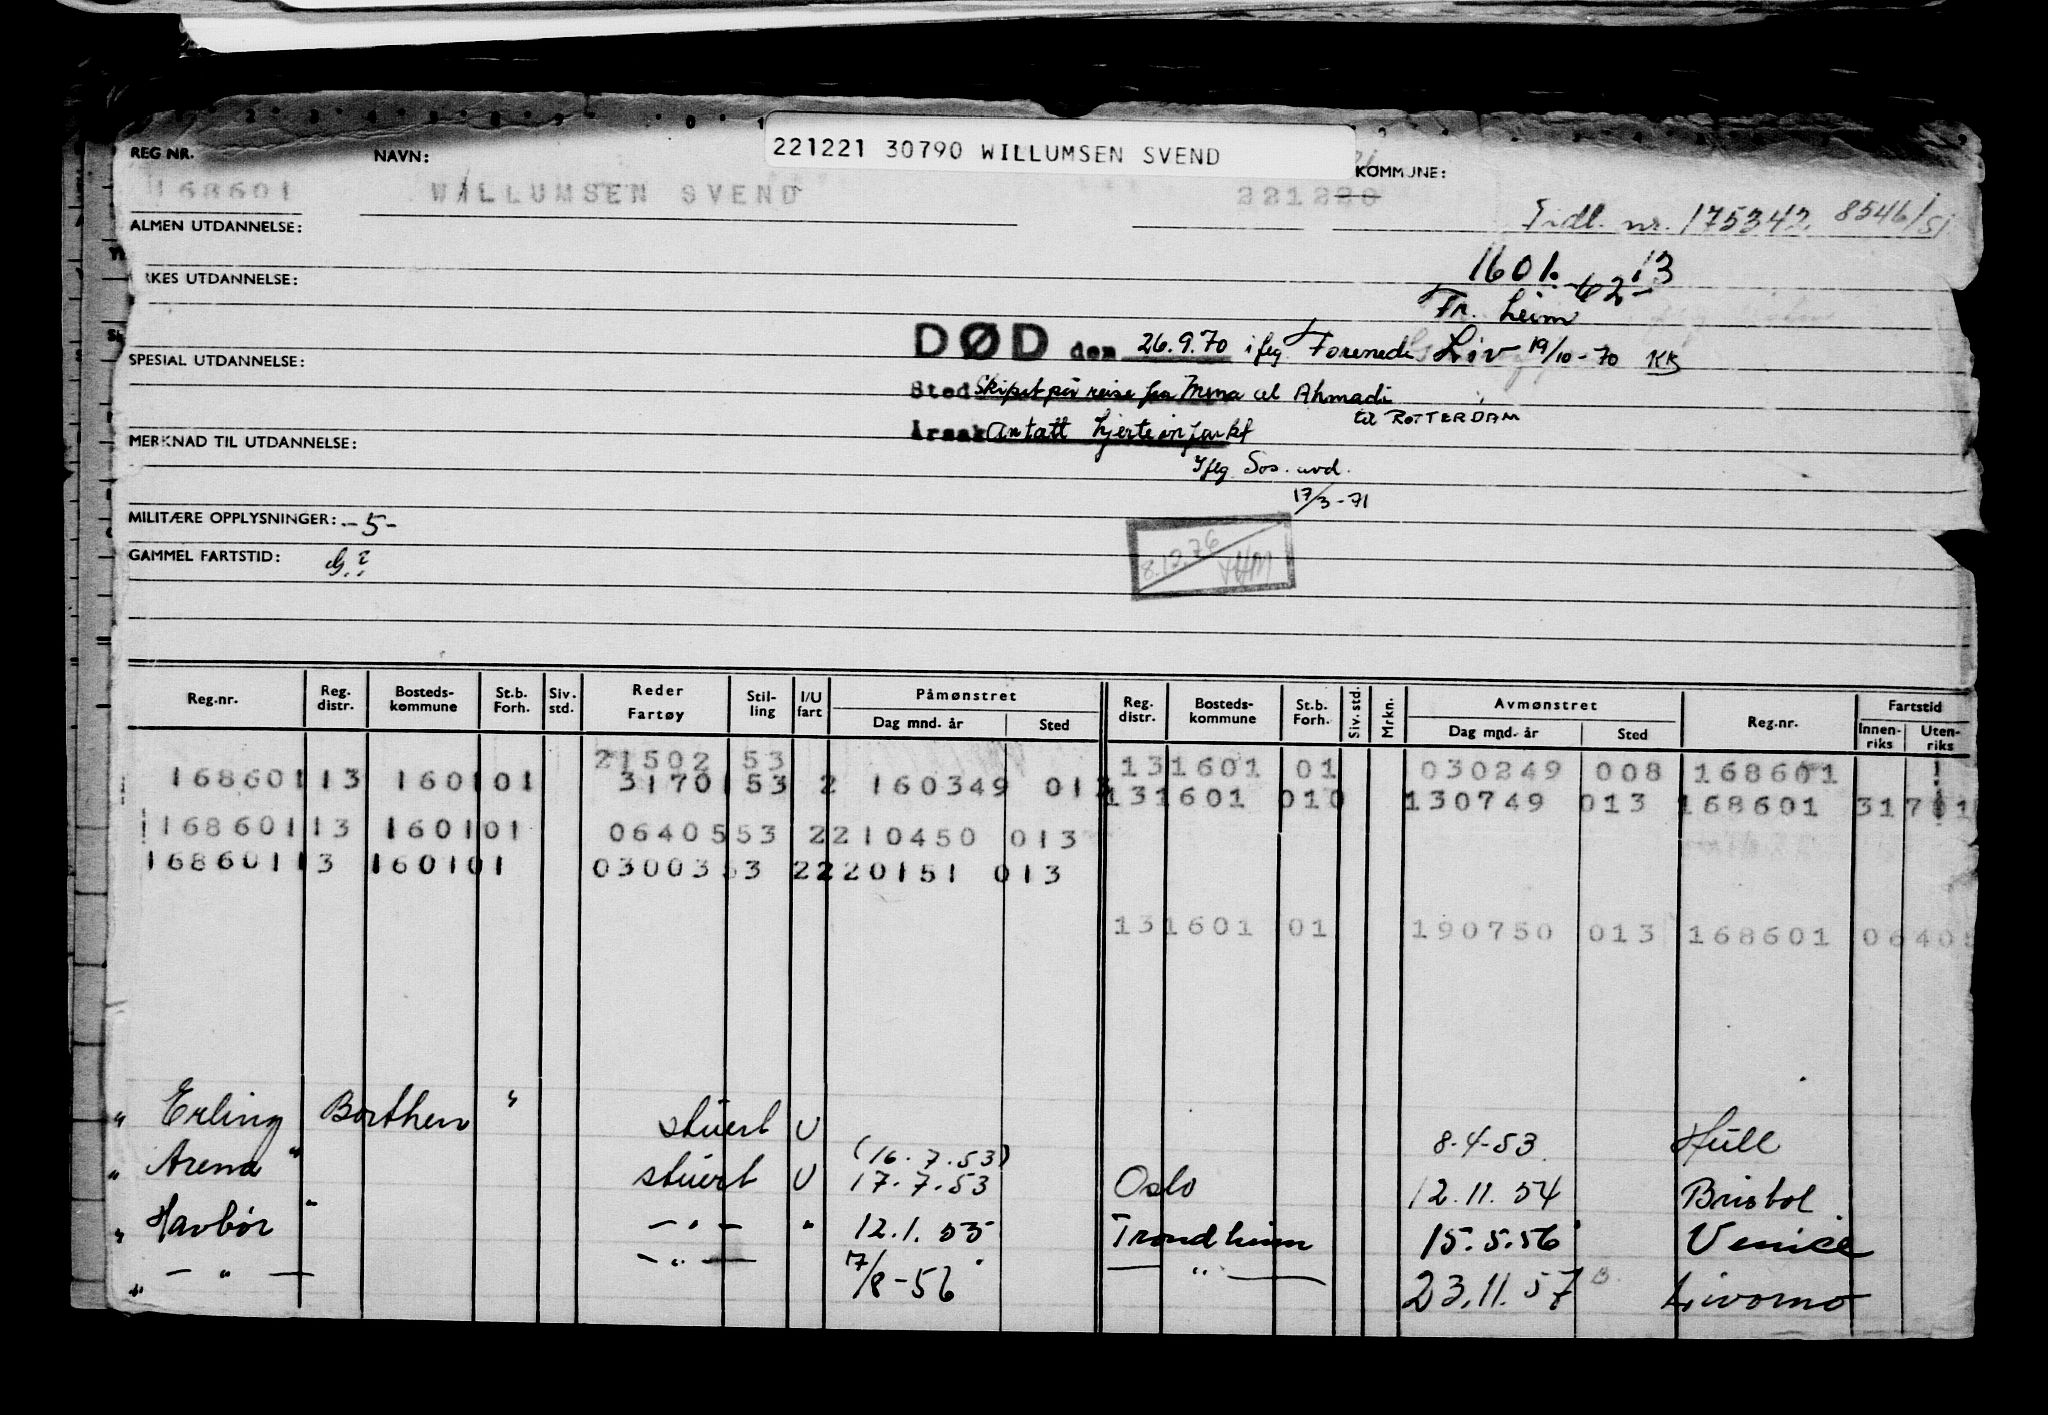 221221 30790 WILLUMSEN SVEND
REG NR. NAVN: KOMMUNE:
168601 WILLUMSEN SVEND 221220
Tidl. nr. 175342 8546/51
ALMEN UTDANNELSE:
1601. 13
YRKES UTDANNELSE: 62-
Tr. heim
DØD den 26.9.70 iflg. Forenede Liv 19/10-70 KK
SPESIAL UTDANNELSE:
Sted Skipet på reise fra Mena al Ahmadi
til ROTTERDAM
Årsak Antatt hjerteinfarkt
MERKNAD TIL UTDANNELSE:
Iflg Sos. avd.
17/3-71
MILITÆRE OPPLYSNINGER: -5-
8.12.76
GAMMEL FARTSTID: G.?
Reg.nr. Reg. distr. Bosteds-kommune St.b. Forh. Siv. std. Reder Fartøy Stil-ling I/U fart Påmønstret Dag mnd. år Sted Reg. distr. Bosteds-kommune St.b. Forh. Siv. std. Mrkn. Avmønstret Dag mnd. år Sted Reg.nr. Fartstid Innen-riks Uten-riks
21502 53 131601 01 030249 008 168601
168601 13 1601 01 31701 53 2 160349 013 131601 010 130749 013 168601 31701
168601 13 1601 01 06405 53 2 210450 013
168601 13 1601 01 03003 53 2 220151 013
131601 01 190750 013 168601 06405
" Erling Borthen " stuert U 8-4-53 Hull
(16.7.53)
" Arena " stuert U 17.7.53 Oslo 12.11.54 Bristol
" Havbør " -"- " 12.1.55 Trondheim 15.5.56 Venice
" -"- -"- 17/8-56 -"- 23.11.57 Livorno